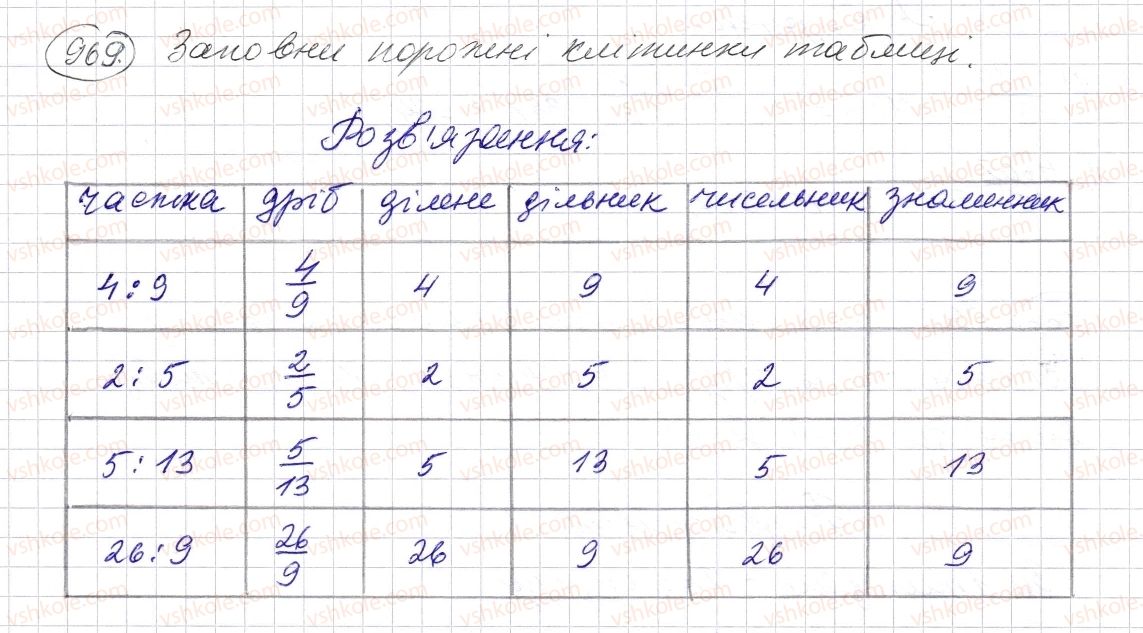 969. Заповни порожні клітинки таблиці.
Розв'язання:
частка дріб ділене дільник чисельник знаменник
4 : 9 4/9 4 9 4 9
2 : 5 2/5 2 5 2 5
5 : 13 5/13 5 13 5 13
26 : 9 26/9 26 9 26 9
vshkole.com